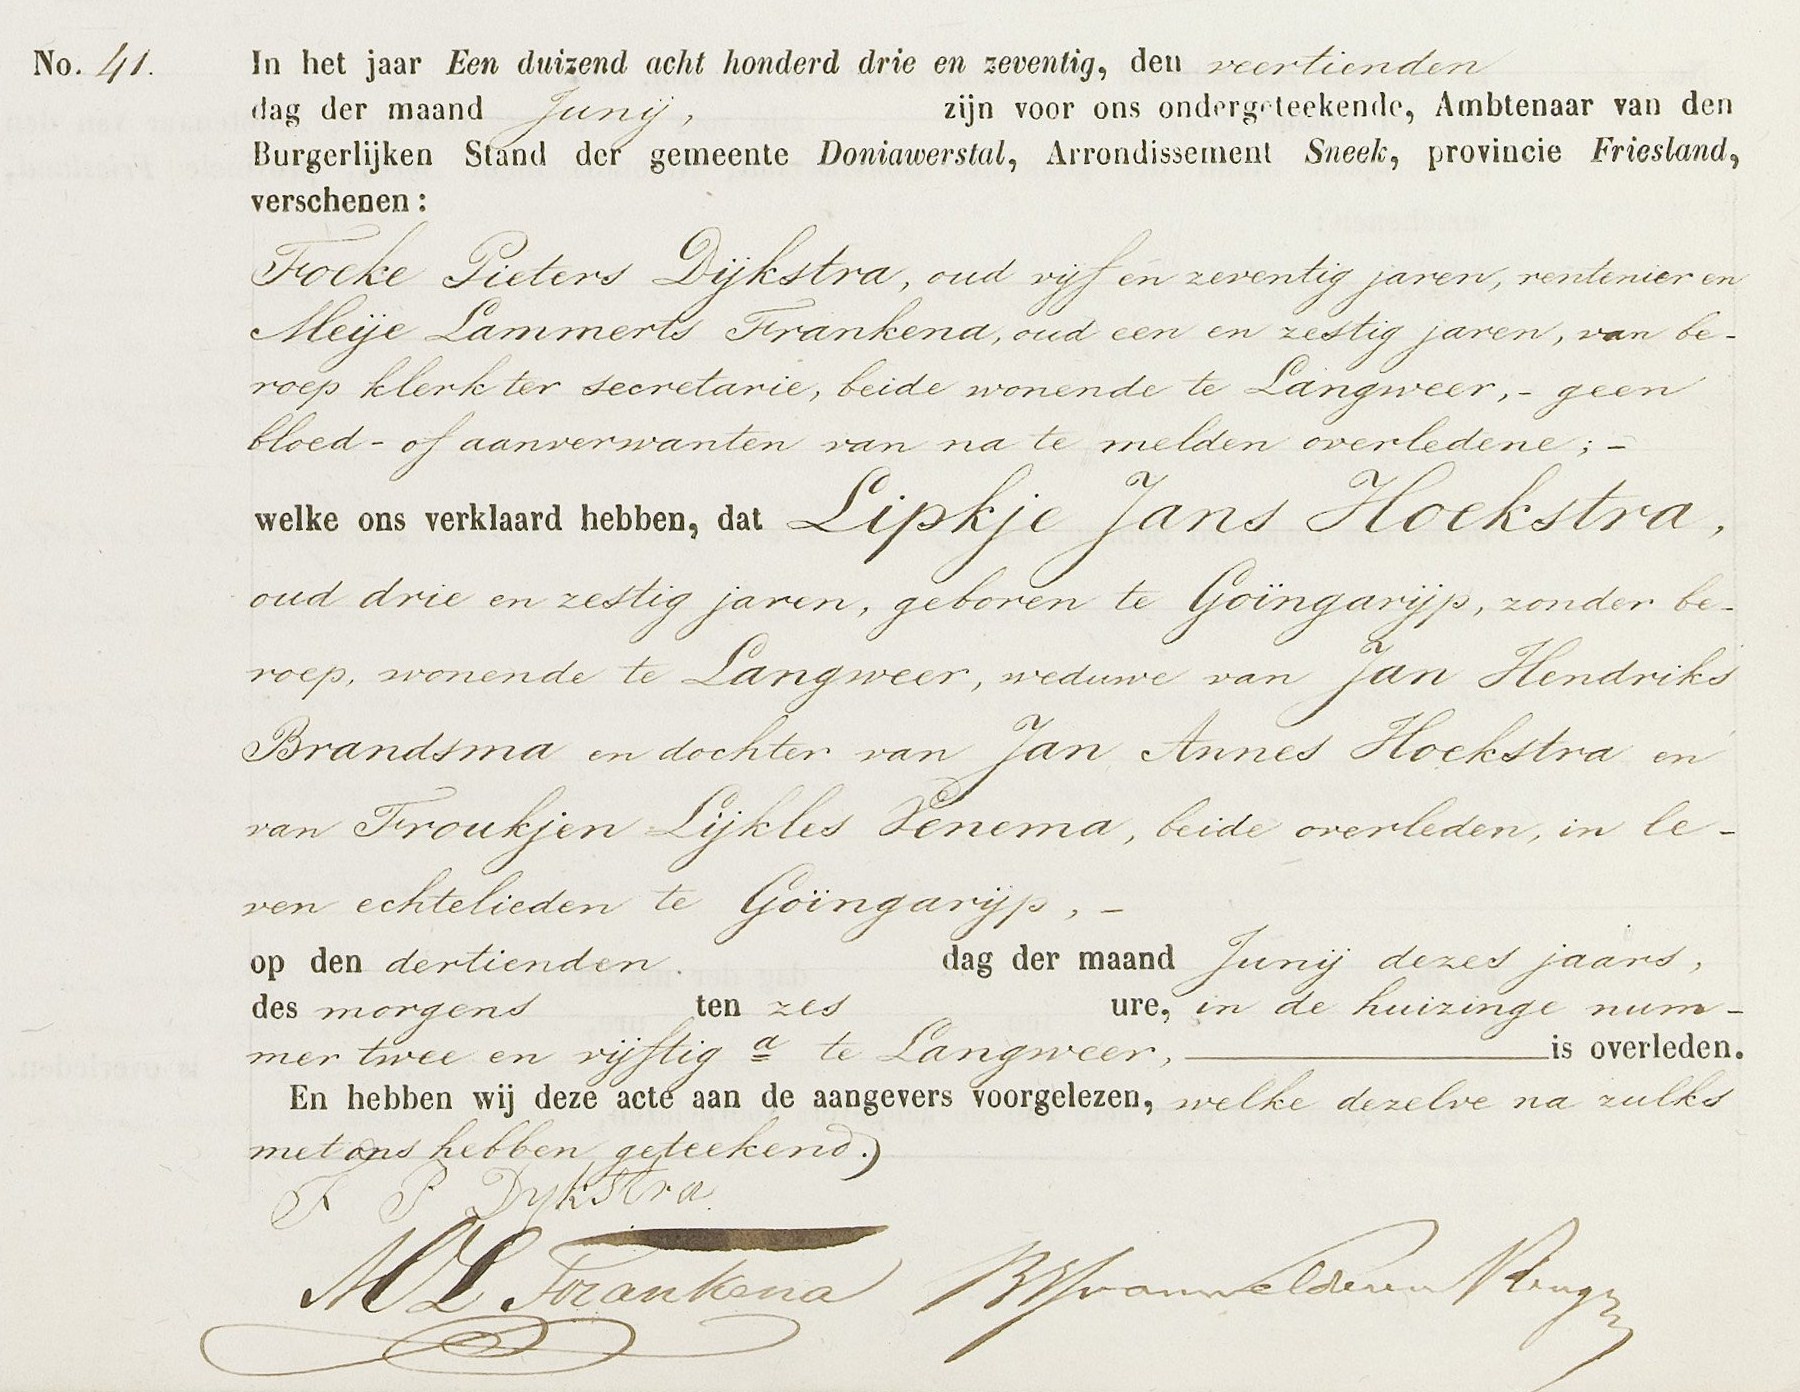 No. 41. In het jaar Een duizend acht honderd drie en zeventig, den veertienden
dag der maand Junij, zijn voor ons ondergeteekende, Ambtenaar van den
Burgerlijken Stand der gemeente Doniawerstal, Arrondissement Sneek, provincie Friesland,
verschenen:
Foeke Pieters Dijkstra, oud vijf en zeventig jaren, rentenier en
Meije Lammerts Frankena, oud een en zestig jaren, van be-
roep klerk ter secretarie, beide wonende te Langweer, - geen
bloed- of aanverwanten van na te melden overledene; -
welke ons verklaard hebben, dat Lipkje Jans Hoekstra,
oud drie en zestig jaren, geboren te Goïngarijp, zonder be-
roep, wonende te Langweer, weduwe van Jan Hendriks
Brandsma en dochter van Jan Annes Hoekstra en
van Froukjen Lijkles Venema, beide overleden, in le-
ven echtelieden te Goïngarijp, -
op den dertienden dag der maand Junij dezes jaars,
des morgens ten zes ure, in de huizinge num-
mer twee en vijftig a te Langweer, is overleden.
En hebben wij deze acte aan de aangevers voorgelezen, welke dezelve na zulks
met ons hebben geteekend.
F P Dykstra
M L Frankena